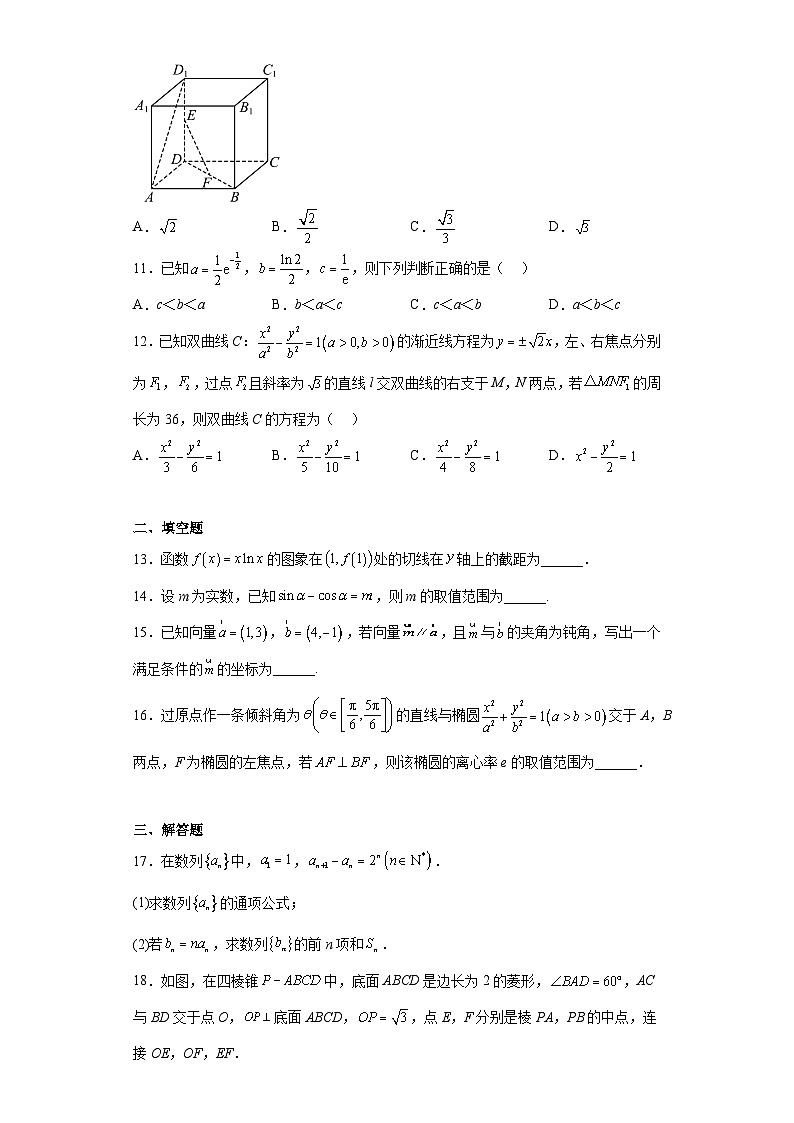 D₁ C₁
A₁ B₁
E
D C
F
A B
A. √2 B. √2/2 C. √3/3 D. √3
11.已知a=1/2 e^(-1/2),b=ln2/2,c=1/e,则下列判断正确的是( )
A.c<b<a B.b<a<c C.c<a<b D.a<b<c
12.已知双曲线C:x²/a²-y²/b²=1(a>0,b>0)的渐近线方程为y=±√2x,左、右焦点分别
为F₁,F₂,过点F₂且斜率为√3的直线l交双曲线的右支于M,N两点,若△MNF₁的周
长为36,则双曲线C的方程为( )
A. x²/3-y²/6=1 B. x²/5-y²/10=1 C. x²/4-y²/8=1 D. x²-y²/2=1
二、填空题
13.函数f(x)=xlnx的图象在(1,f(1))处的切线在y轴上的截距为______.
14.设m为实数,已知sinα-cosα=m,则m的取值范围为______.
15.已知向量a=(1,3),b=(4,-1),若向量m//a,且m与b的夹角为钝角,写出一个
满足条件的m的坐标为______.
16.过原点作一条倾斜角为θ(θ∈[π/6,5π/6])的直线与椭圆x²/a²+y²/b²=1(a>b>0)交于A,B
两点,F为椭圆的左焦点,若AF⊥BF,则该椭圆的离心率e的取值范围为______.
三、解答题
17.在数列{aₙ}中,a₁=1,aₙ₊₁-aₙ=2ⁿ(n∈N*).
(1)求数列{aₙ}的通项公式;
(2)若bₙ=naₙ,求数列{bₙ}的前n项和Sₙ.
18.如图,在四棱锥P-ABCD中,底面ABCD是边长为2的菱形,∠BAD=60°,AC
与BD交于点O,OP⊥底面ABCD,OP=√3,点E,F分别是棱PA,PB的中点,连
接OE,OF,EF.